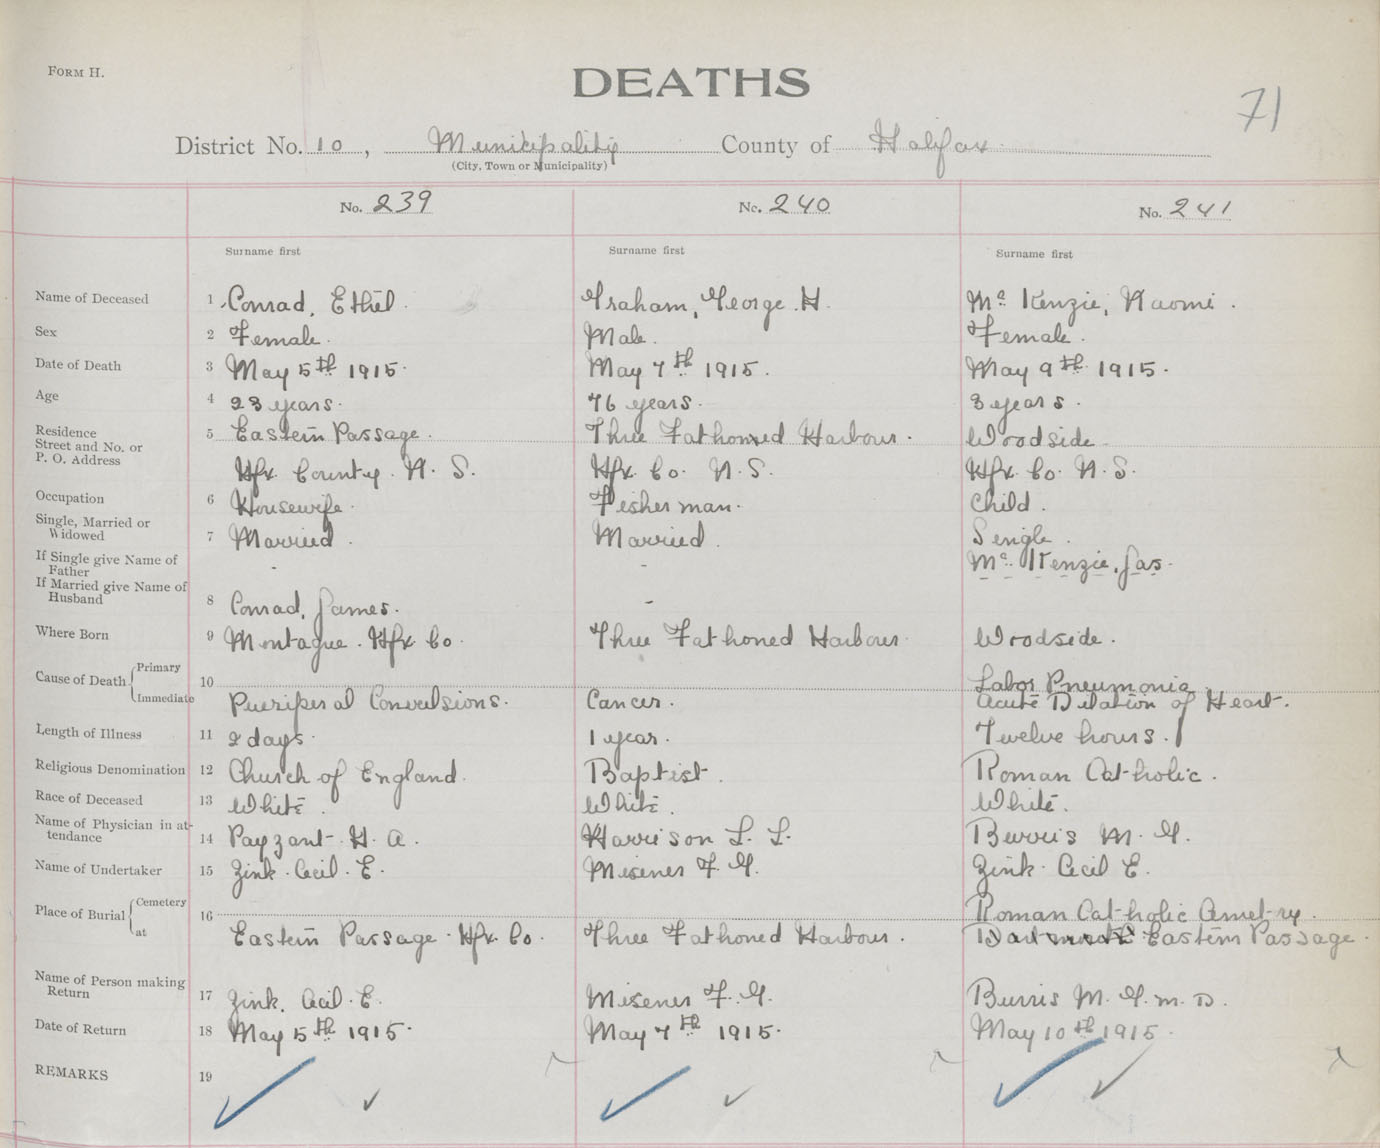 FORM H.
DEATHS
71
District No. 10, Municipality County of Halifax
(City, Town or Municipality)
No. 239 No. 240 No. 241
Surname first Surname first Surname first
Name of Deceased 1 Conrad, Ethel. Graham, George H. Mc Kenzie, Naomi.
Sex 2 Female. Male. Female.
Date of Death 3 May 5th 1915. May 7th 1915. May 9th 1915.
Age 4 23 years. 76 years. 3 years.
Residence Street and No. or P. O. Address 5 Eastern Passage. Three Fathomed Harbour. Woodside
Hfx County. N. S. Hfx. Co. N. S. Hfx. Co. N. S.
Occupation 6 Housewife. Fisherman. Child.
Single, Married or Widowed 7 Married. Married. Single.
If Single give Name of Father - - Mc Kenzie, Jas.
If Married give Name of Husband 8 Conrad, James. -
Where Born 9 Montague. Hfx Co Three Fathoned Harbour. Woodside.
Cause of Death Primary 10 Labor Pneumonia
Immediate Puerperal Convulsions. Cancer. Acute Dilation of Heart.
Length of Illness 11 2 days. 1 year. Twelve hours.
Religious Denomination 12 Church of England. Baptist. Roman Catholic.
Race of Deceased 13 White. White. White.
Name of Physician in attendance 14 Payzant. H. A. Harrison L. L. Burris M. G.
Name of Undertaker 15 Zink. Cecil. E. Misener F. G. Zink. Cecil E.
Place of Burial Cemetery 16 Roman Catholic Cemetry.
at Eastern Passage. Hfx. Co. Three Fathoned Harbour. Eastern Passage.
Name of Person making Return 17 Zink. Cecil. E. Misener F. G. Burris M. G. M. D.
Date of Return 18 May 5th 1915. May 7th 1915. May 10th 1915.
REMARKS 19